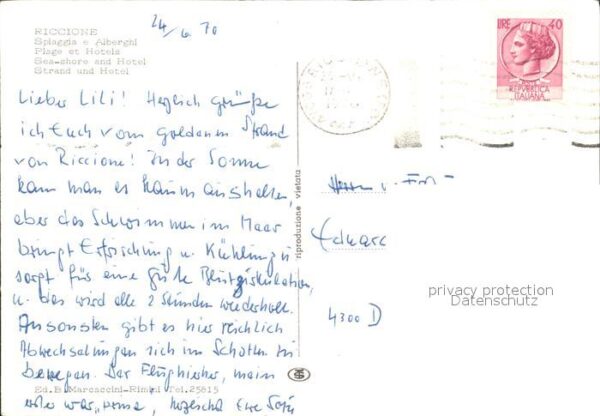 24/6 70
RICCIONE
Spiaggia e Alberghi
Plage et Hotels
Sea-shore and Hotel
Strand und Hotel
LIRE 40
REPUBBLICA
ITALIANA
Lieber Lili! Herzlich grüße
ich Euch vom goldenen Strand
von Riccione! In der Sonne
kann man es kaum aushalten,
aber das Schwimmen im Meer
bringt Erfrischung u. Kühlung u
sorgt für eine gute Blutzirkulation,
u. das wird alle 2 Stunden wiederholt.
Ansonsten gibt es hier reichlich
Abwechselungen sich im Schatten zu
bewegen. Der Flug hierher, mein
erster war "prima", herzlichst Eure
riproduzione vietata
Herrn u. Frau
4300 D
privacy protection
Datenschutz
Ed. B. Marcaccini-Rimini Tel. 25815